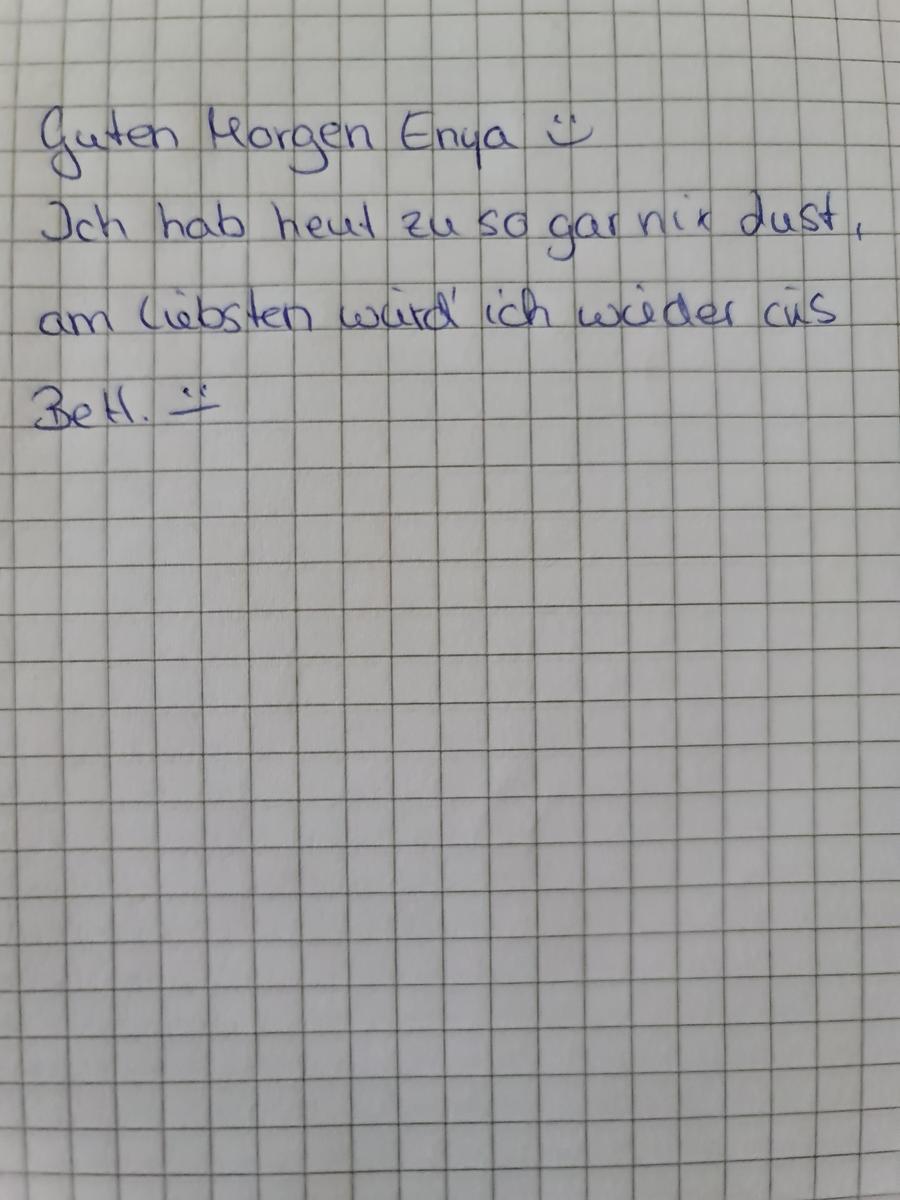 Guten Morgen Enya :)
Ich hab heut zu so gar nix Lust,
am liebsten würd' ich wieder ins
Bett. :|